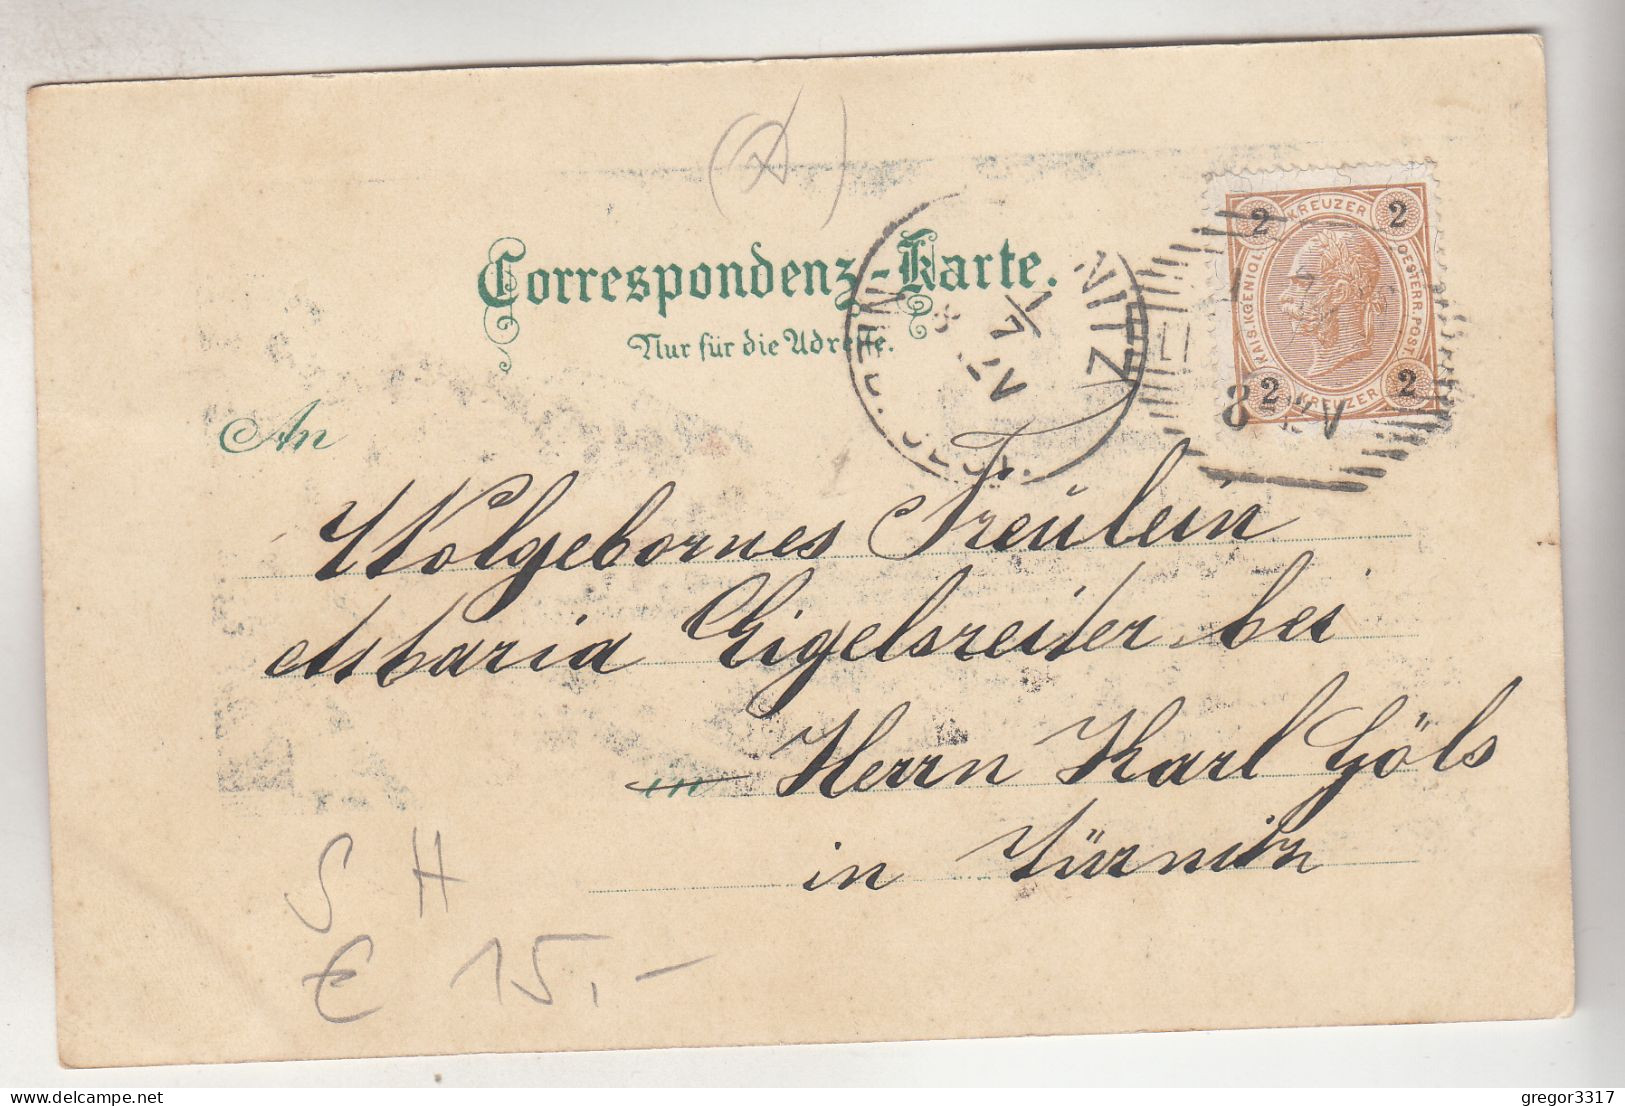 (A)
Correspondenz-Karte.
Nur für die Adresse.
2 KREUZER 2
KAIS. KOENIGL. OESTERR. POST.
2 KREUZER 2
NITZ
NIED.
8
An
Wolgebornes Freulein
Maria Eigelsreiter bei
in Herrn Karl Göls
in Türnitz
S H
€ 15,-
delcampe.net
gregor3317